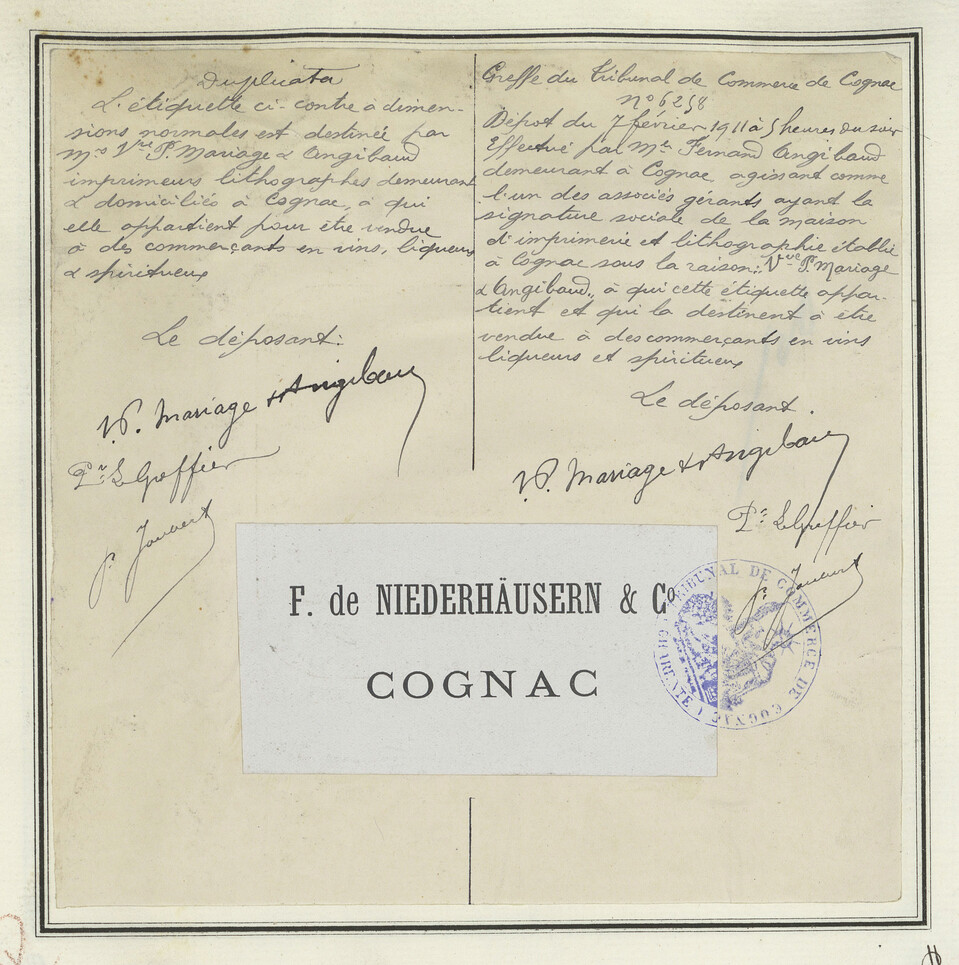 Duplicata
L'étiquette ci-contre à dimen-
sions normales est destinée par
Mrs Vve P. Mariage & Angibaud
imprimeurs lithographes demeurant
& domiciliés à Cognac, à qui
elle appartient pour être vendue
à des commerçants en vins, liqueurs
& spiritueux
Le déposant:
V.P. Mariage & Angibaud
Pr Le Greffier
P. Joubert
Greffe du Tribunal de Commerce de Cognac
No 6258
Dépot du 7 février 1911 à 5 heures du soir
Effectué par Mr Fernand Angibaud
demeurant à Cognac agissant comme
l'un des associés gérants ayant la
signature sociale de la maison
d'imprimerie et lithographie établie
à Cognac sous la raison: "Vve P. Mariage
& Angibaud", à qui cette étiquette appar-
tient et qui la destinent à être
vendue à des commerçants en vins
liqueurs et spiritueux
Le déposant.
V.P. Mariage & Angibaud
Pr Le Greffier
P. Joubert
F. de NIEDERHÄUSERN & Co
COGNAC
TRIBUNAL DE COMMERCE DE COGNAC (CHARENTE)